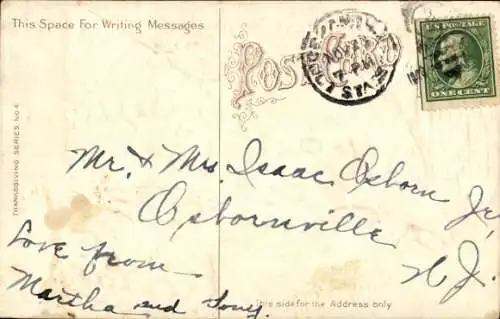 This Space For Writing Messages
Post Card
NOV
7 PM
U.S. POSTAGE
ONE CENT
THANKSGIVING SERIES NO. 4
Mr. & Mrs. Isaac Osborn Jr.
Osbornville
N. J.
Love from
Martha and Tony.
This side for the Address only